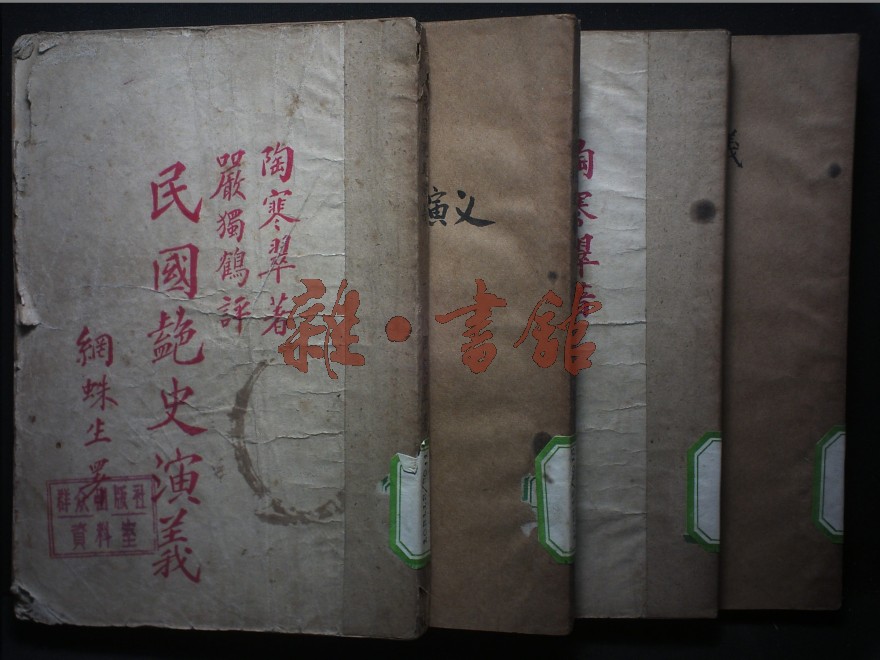 陶寒翠著
嚴獨鶴評
民國艷史演義
網蛛生署
群众出版社
資料室
演义
陶寒翠著
義
雜·書館